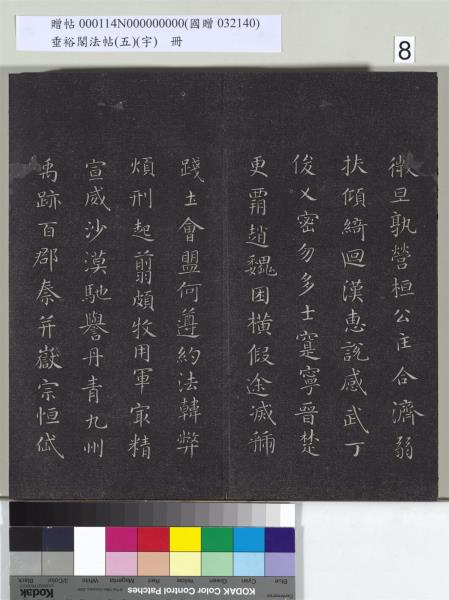 贈帖 000114N000000000(國贈 032140)
垂裕閣法帖(五)(宇) 冊
8
微旦孰營桓公主合濟弱
扶傾綺迴漢惠說感武丁
俊乂密勿多士寔寧晉楚
更霸趙魏困橫假途滅虢
踐土會盟何遵約法韓弊
煩刑起翦頗牧用軍最精
宣威沙漠馳譽丹青九州
禹跡百郡秦并嶽宗恒岱
Blue Cyan Green Yellow Red Magenta White 3/Color Black
Kodak
KODAK Color Control Patches